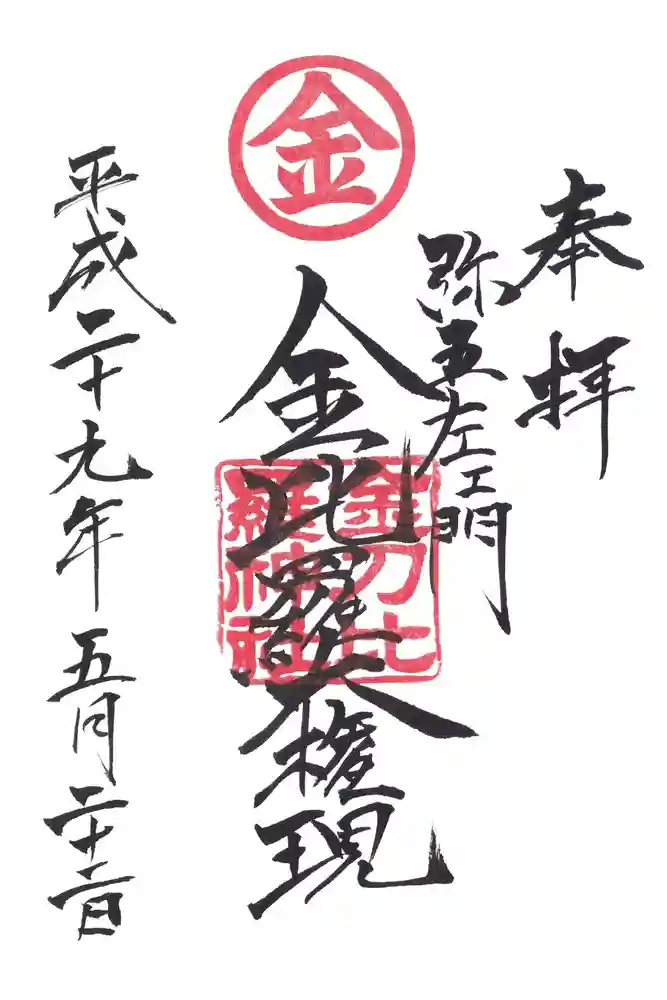 奉拝
弥五左エ門
金
金比羅大権現
金刀比
羅神社
平成二十九年五月二十二日